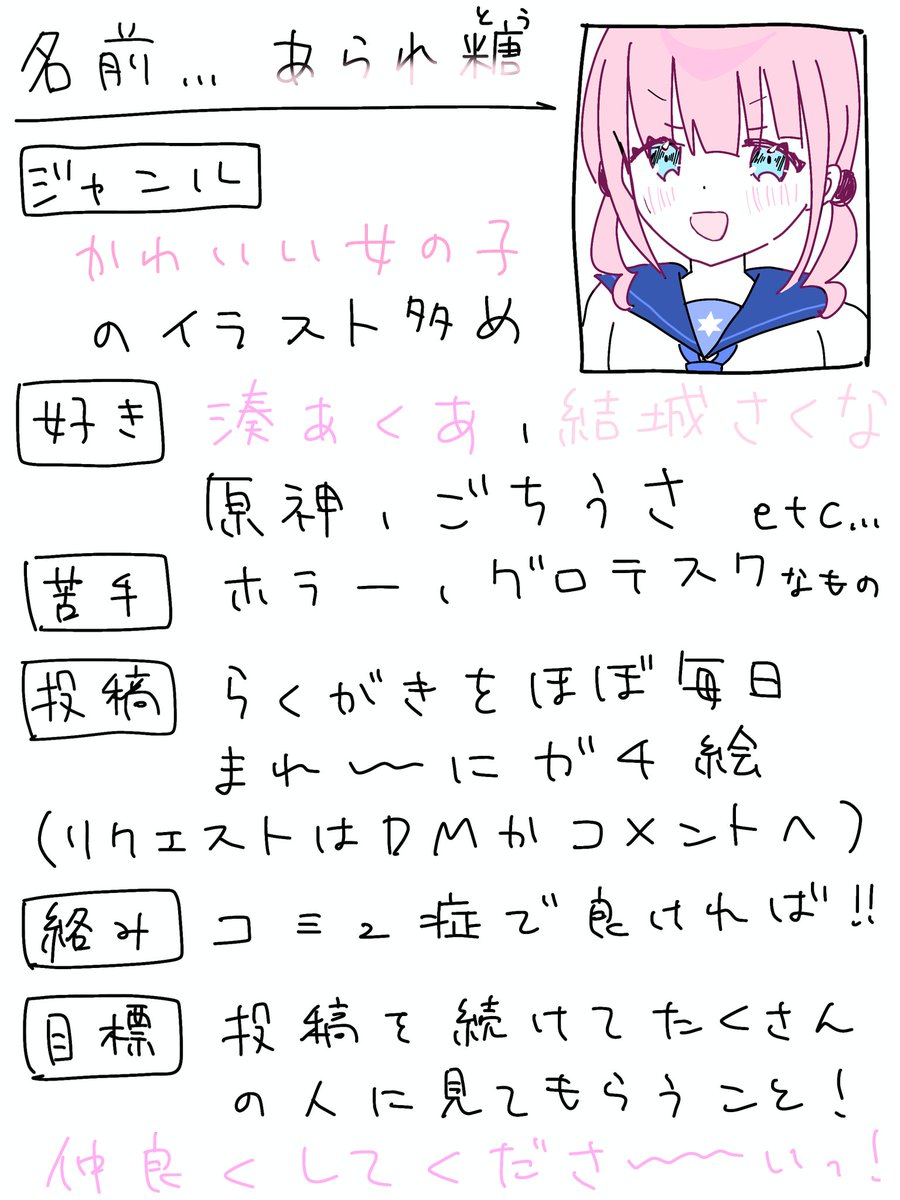 名前… あられ糖
とう
ジャンル
かわいい女の子
のイラスト多め
好き 湊あくあ、結城さくな
原神、ごちうさ etc...
苦手 ホラー、グロテスクなもの
投稿 らくがきをほぼ毎日
まれ〜〜にガチ絵
(リクエストはDMかコメントへ)
絡み コミュ症で良ければ!!
目標 投稿を続けてたくさん
の人に見てもらうこと!
仲良くしてくださ〜〜いっ!